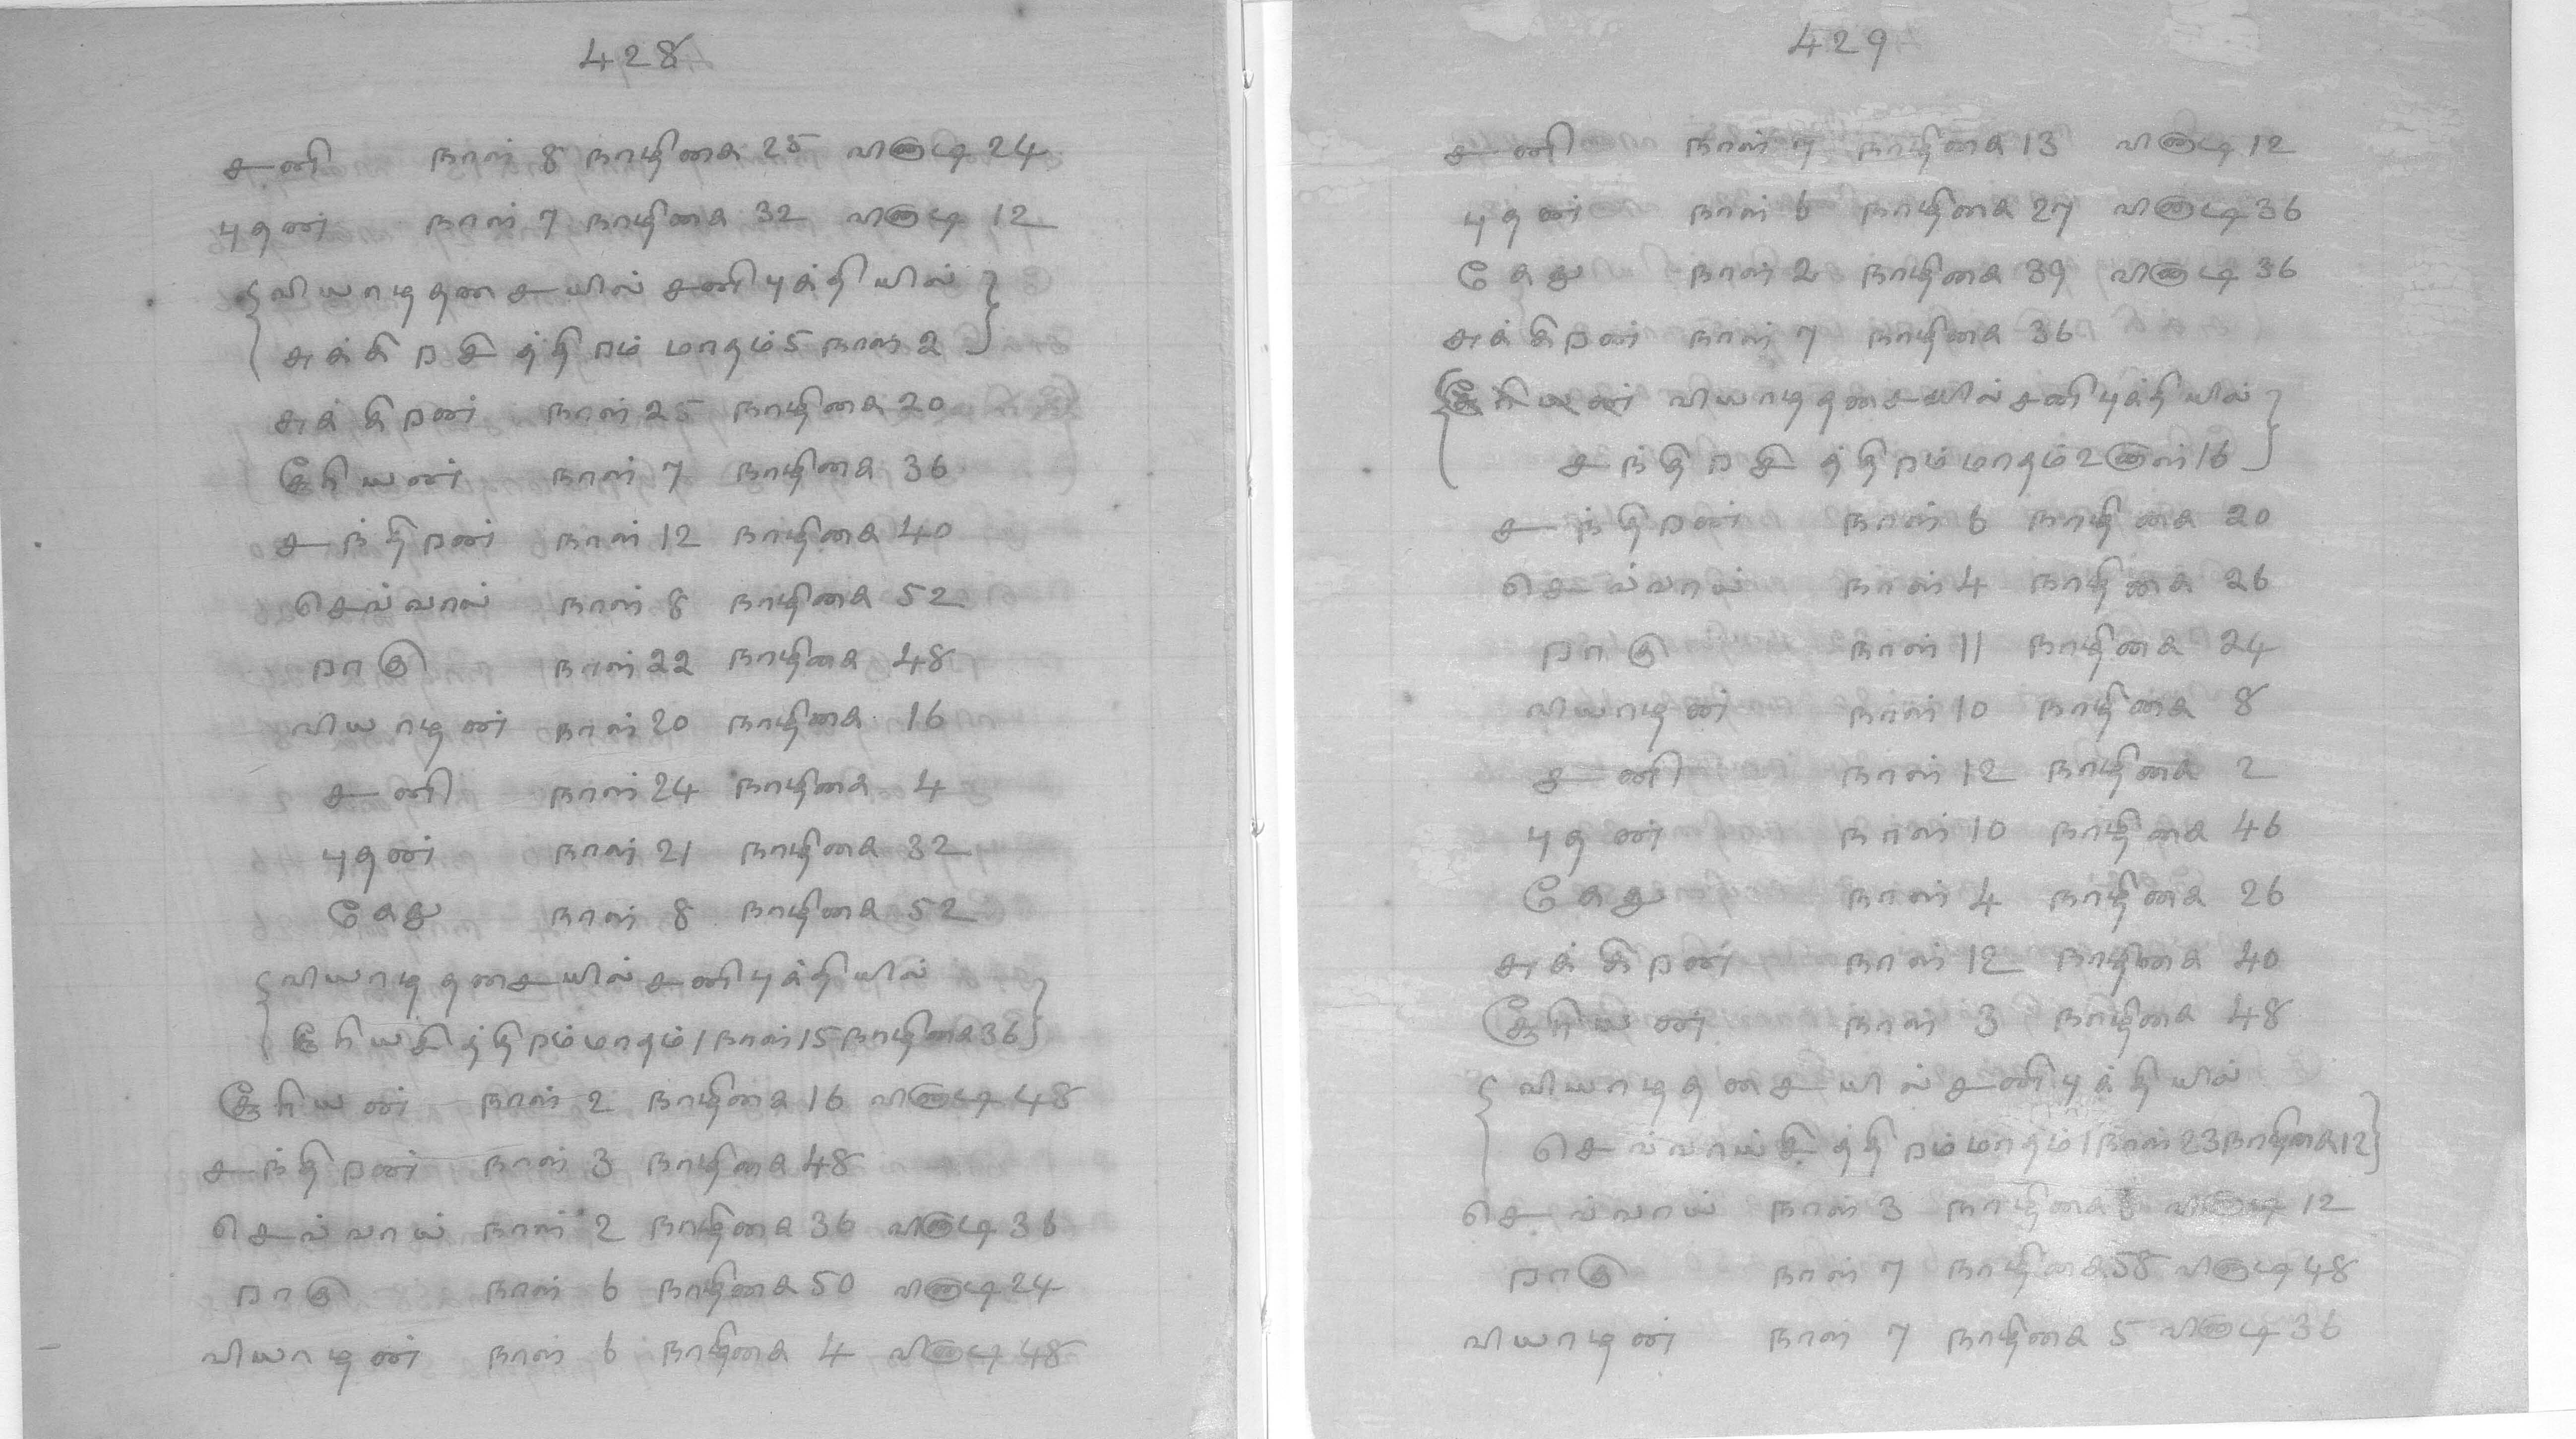 428
சனி நாள் 8 நாழிகை 25 விநாடி 24
புதன் நாள் 7 நாழிகை 32 விநாடி 12
{வியாழதசையில் சனிபுக்தியில்}
{சுக்கிறசித்திறம் மாதம் 5 நாள் 2}
சுக்கிறன் நாள் 25 நாழிகை 20
சூரியன் நாள் 7 நாழிகை 36
சந்திறன் நாள் 12 நாழிகை 40
செவ்வாய் நாள் 8 நாழிகை 52
றாகு நாள் 22 நாழிகை 48
வியாழன் நாள் 20 நாழிகை 16
சனி நாள் 24 நாழிகை 4
புதன் நாள் 21 நாழிகை 32
கேது நாள் 8 நாழிகை 52
{வியாழதசையில் சனிபுக்தியில்}
{சூரியசித்திறம் மாதம் 1 நாள் 15 நாழிகை 36}
சூரியன் நாள் 2 நாழிகை 16 விநாடி 48
சந்திறன் நாள் 3 நாழிகை 48
செவ்வாய் நாள் 2 நாழிகை 36 விநாடி 36
றாகு நாள் 6 நாழிகை 50 விநாடி 24
வியாழன் நாள் 6 நாழிகை 4 விநாடி 48
429
சனி நாள் 7 நாழிகை 13 விநாடி 12
புதன் நாள் 6 நாழிகை 27 விநாடி 36
கேது நாள் 2 நாழிகை 39 விநாடி 36
சுக்கிறன் நாள் 7 நாழிகை 36
{சூரியன் வியாழதசையில் சனிபுக்தியில்}
{சந்திறசித்திறம் மாதம் 2 நாள் 16}
சந்திறன் நாள் 6 நாழிகை 20
செவ்வாய் நாள் 4 நாழிகை 26
றாகு நாள் 11 நாழிகை 24
வியாழன் நாள் 10 நாழிகை 8
சனி நாள் 12 நாழிகை 2
புதன் நாள் 10 நாழிகை 46
கேது நாள் 4 நாழிகை 26
சுக்கிறன் நாள் 12 நாழிகை 40
சூரியன் நாள் 3 நாழிகை 48
{வியாழதசையில் சனிபுக்தியில்}
{செவ்வாய்சித்திறம் மாதம் 1 நாள் 23 நாழிகை 12}
செவ்வாய் நாள் 3 நாழிகை விநாடி 12
றாகு நாள் 7 நாழிகை 58 விநாடி 48
வியாழன் நாள் 7 நாழிகை 5 விநாடி 36